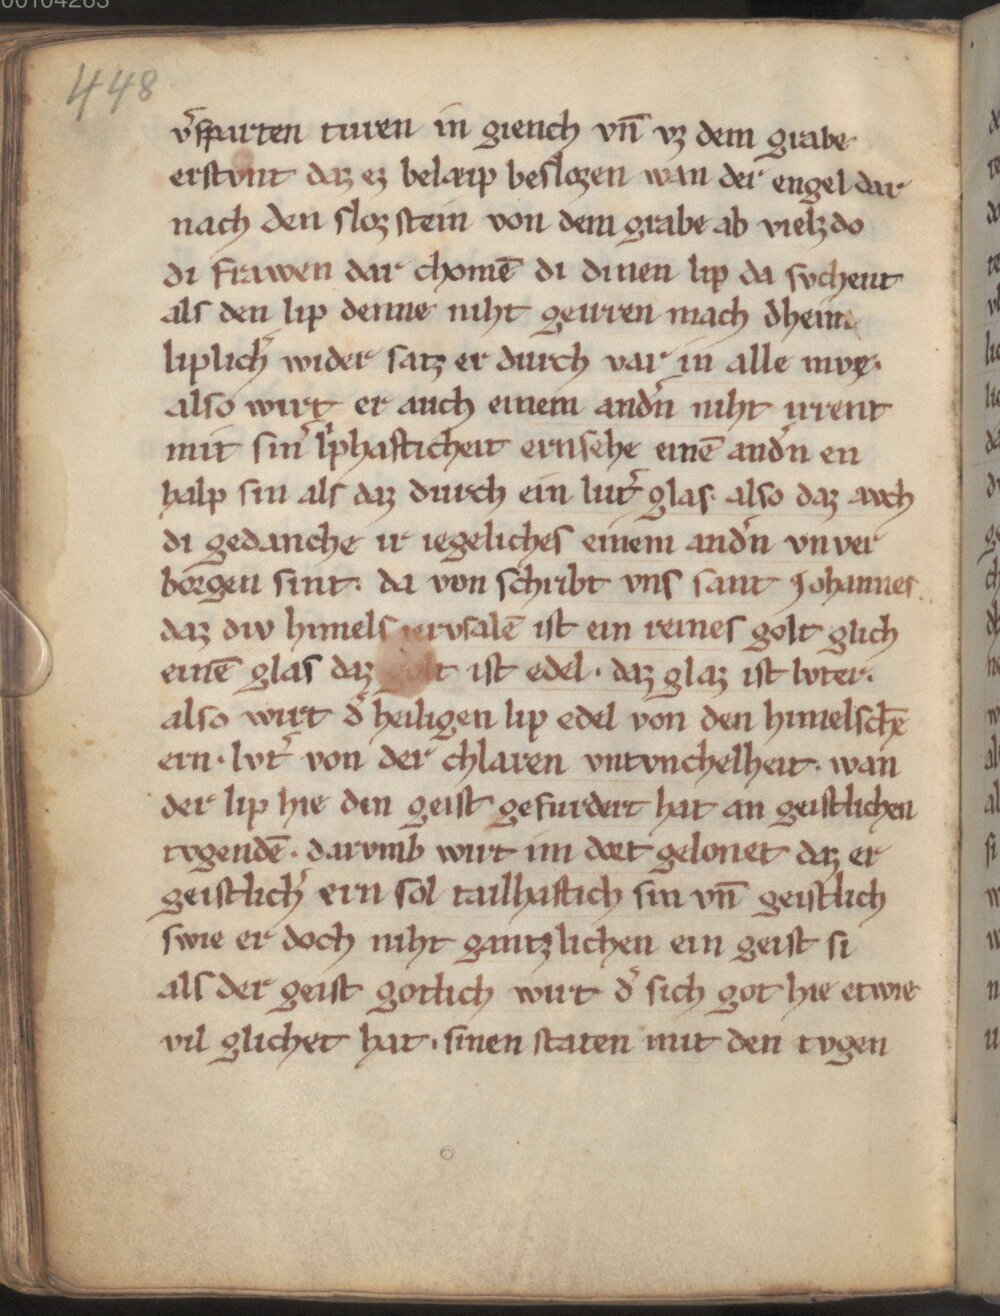 00104263
448
v̉sparten turen in giench vn̄ vz dem grabe
erstvnt daz ez belaip beslozen wan der engel dar
nach den sloz stein von dem grabe ab vielz do
di frawen dar chomē di dinen lip da svchent
als den lip denne niht geirren mach dhein
liplich̉ wider satz er durch var in alle mvͤ·
also wirt er auch einem andn̉ niht irrent
mit sin̉ liphafticheit ernsehe einē andn̉ en
halp sin als daz durch ein lut̉ glas· also daz avch
di gedanche ir iegeliches einem andn̉ vnver
borgen sint· da von schribt vns sant Johannes
daz div himels iervsalē ist ein reines golt glich
einē glas daz golt ist edel· daz glaz ist lvter·
also wirt d̉ heiligen lip edel von den himelschē
ern· lvt̉ von der chlaren vntvnchelheit· wan
der lip hie den geist gefurdert hat an geistlichen
tvgendē· darvmb wirt im dort gelonet daz er
geistlich̉ ern sol tailhaftich sin vn̄ geistlich
swie er doch niht gantzlichen ein geist si
als der geist gotlich wirt d̉ sich got hie etwie
vil glichet hat· sinen staten mit den tvgen